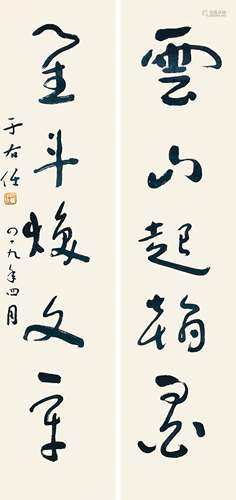 雲山起翰墨
星斗焕文章
于右任
九年四月